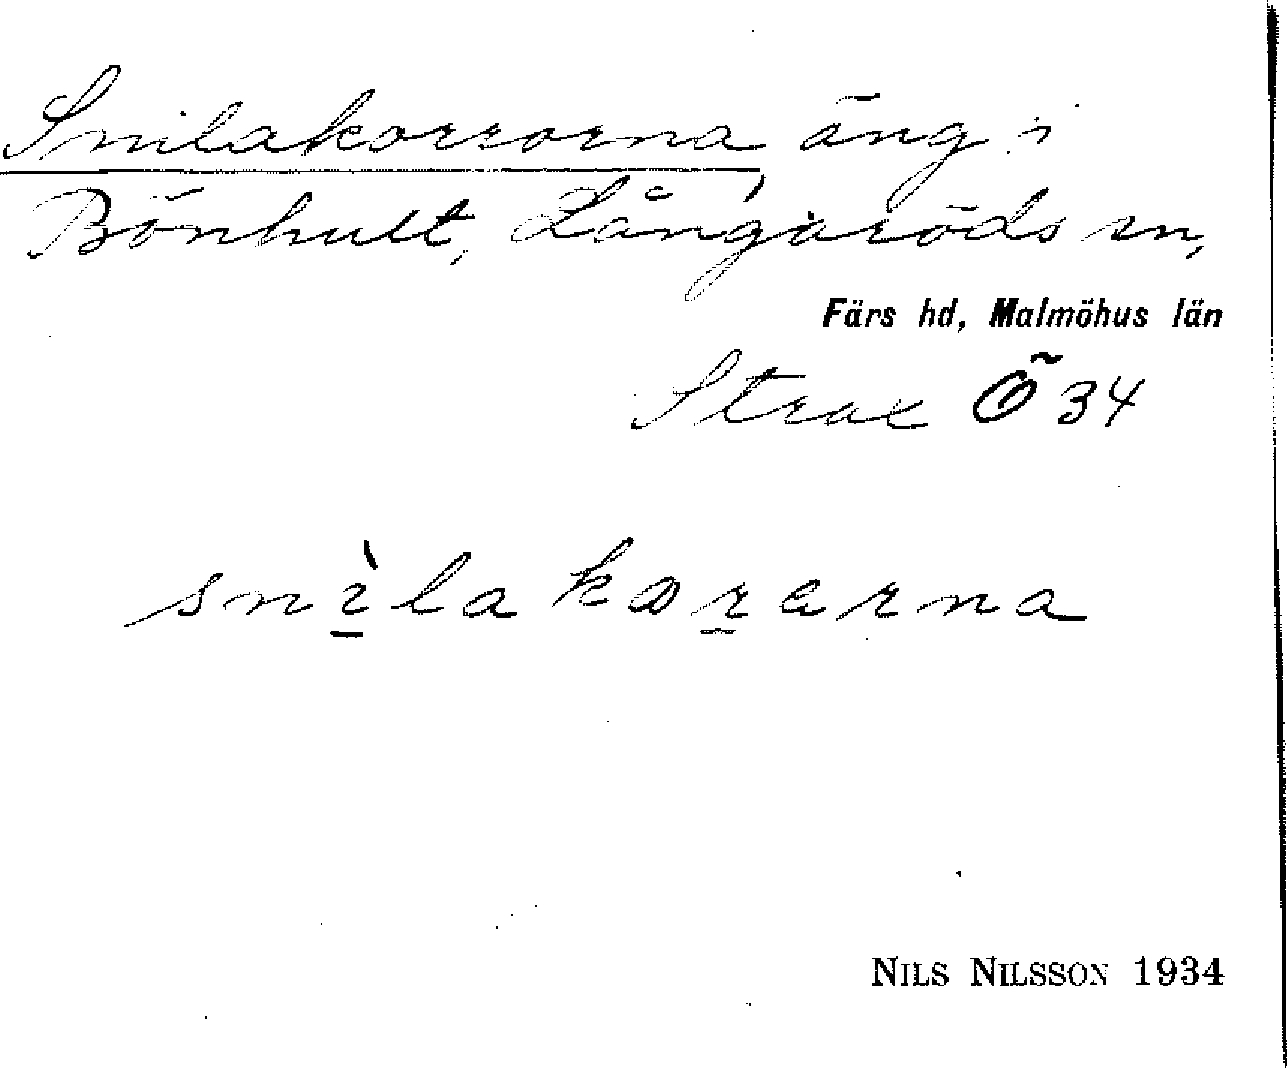 Snilakorrorna, äng i
Bönhult, Långaröds sn,
Färs hd, Malmöhus län
Strax Ö 34
snìla korarna
NILS NILSSON 1934